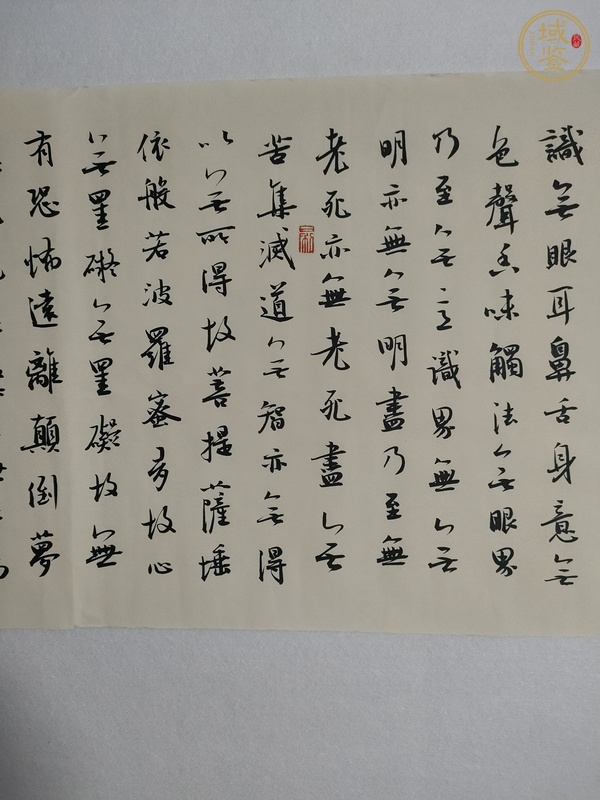 識無眼耳鼻舌身意無
色聲香味觸法無眼界
乃至無意識界無無
明亦無無明盡乃至無
老死亦無老死盡無
苦集滅道無智亦無得
以無所得故菩提薩埵
依般若波羅蜜多故心
無罣礙無罣礙故無
有恐怖遠離顛倒夢
域鉴